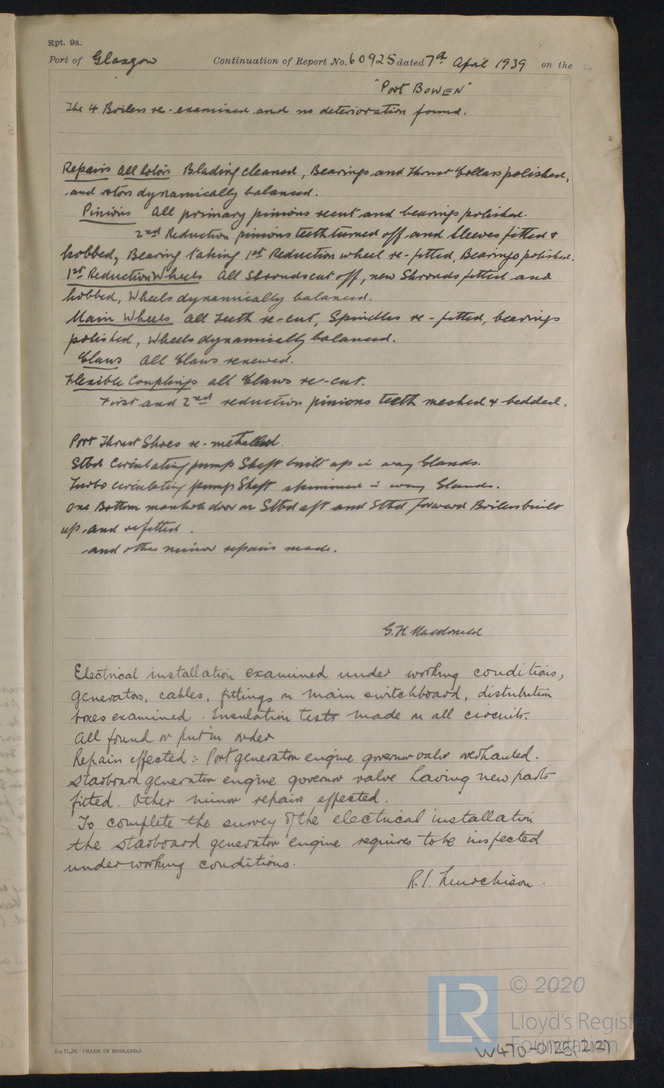 Rpt. 9a.
Port of Glasgow Continuation of Report No. 60925 dated 7th April 1939 on the
"Port BOWEN"
The 4 Boilers re-examined and no deterioration found.
Repairs All Rotors Blading cleaned, Bearings and Thrust Collars polished,
and rotors dynamically balanced.
Pinions All primary pinions recut and bearings polished.
2nd Reduction pinions teeth turned off and sleeves fitted &
hobbed, Bearing taking 1st Reduction wheel re-fitted, Bearings polished.
1st Reduction Wheels All Shrouds cut off, new Shrouds fitted and
hobbed, Wheels dynamically balanced.
Main Wheels All teeth re-cut, Spindles re-fitted, bearings
polished, Wheels dynamically balanced.
Claws All Claws renewed.
Flexible Couplings all Claws re-cut.
First and 2nd reduction pinions teeth meshed & bedded.
Port Thrust Shoes re-metalled.
Stbd Circulating pump Shaft built up in way Glands.
Turbo circulating pump Shaft skimmed in way Glands.
One Bottom manhole door on Stbd aft and Stbd forward Boilers built
up and refitted.
and other minor repairs made.
G.H. Macdonald
Electrical installation examined under working conditions,
generators, cables, fittings on main switchboard, distribution
boxes examined. Insulation tests made on all circuits.
All found or put in order
Repairs effected:- Port generator engine governor valve overhauled.
Starboard generator engine governor valve having new parts
fitted. Other minor repairs effected.
To complete the survey of the electrical installation
the starboard generator engine requires to be inspected
under working conditions.
R. Murchison.
© 2020
LR Lloyd's Register
Foundation
W470-0125(2/2)
(MADE IN ENGLAND.)